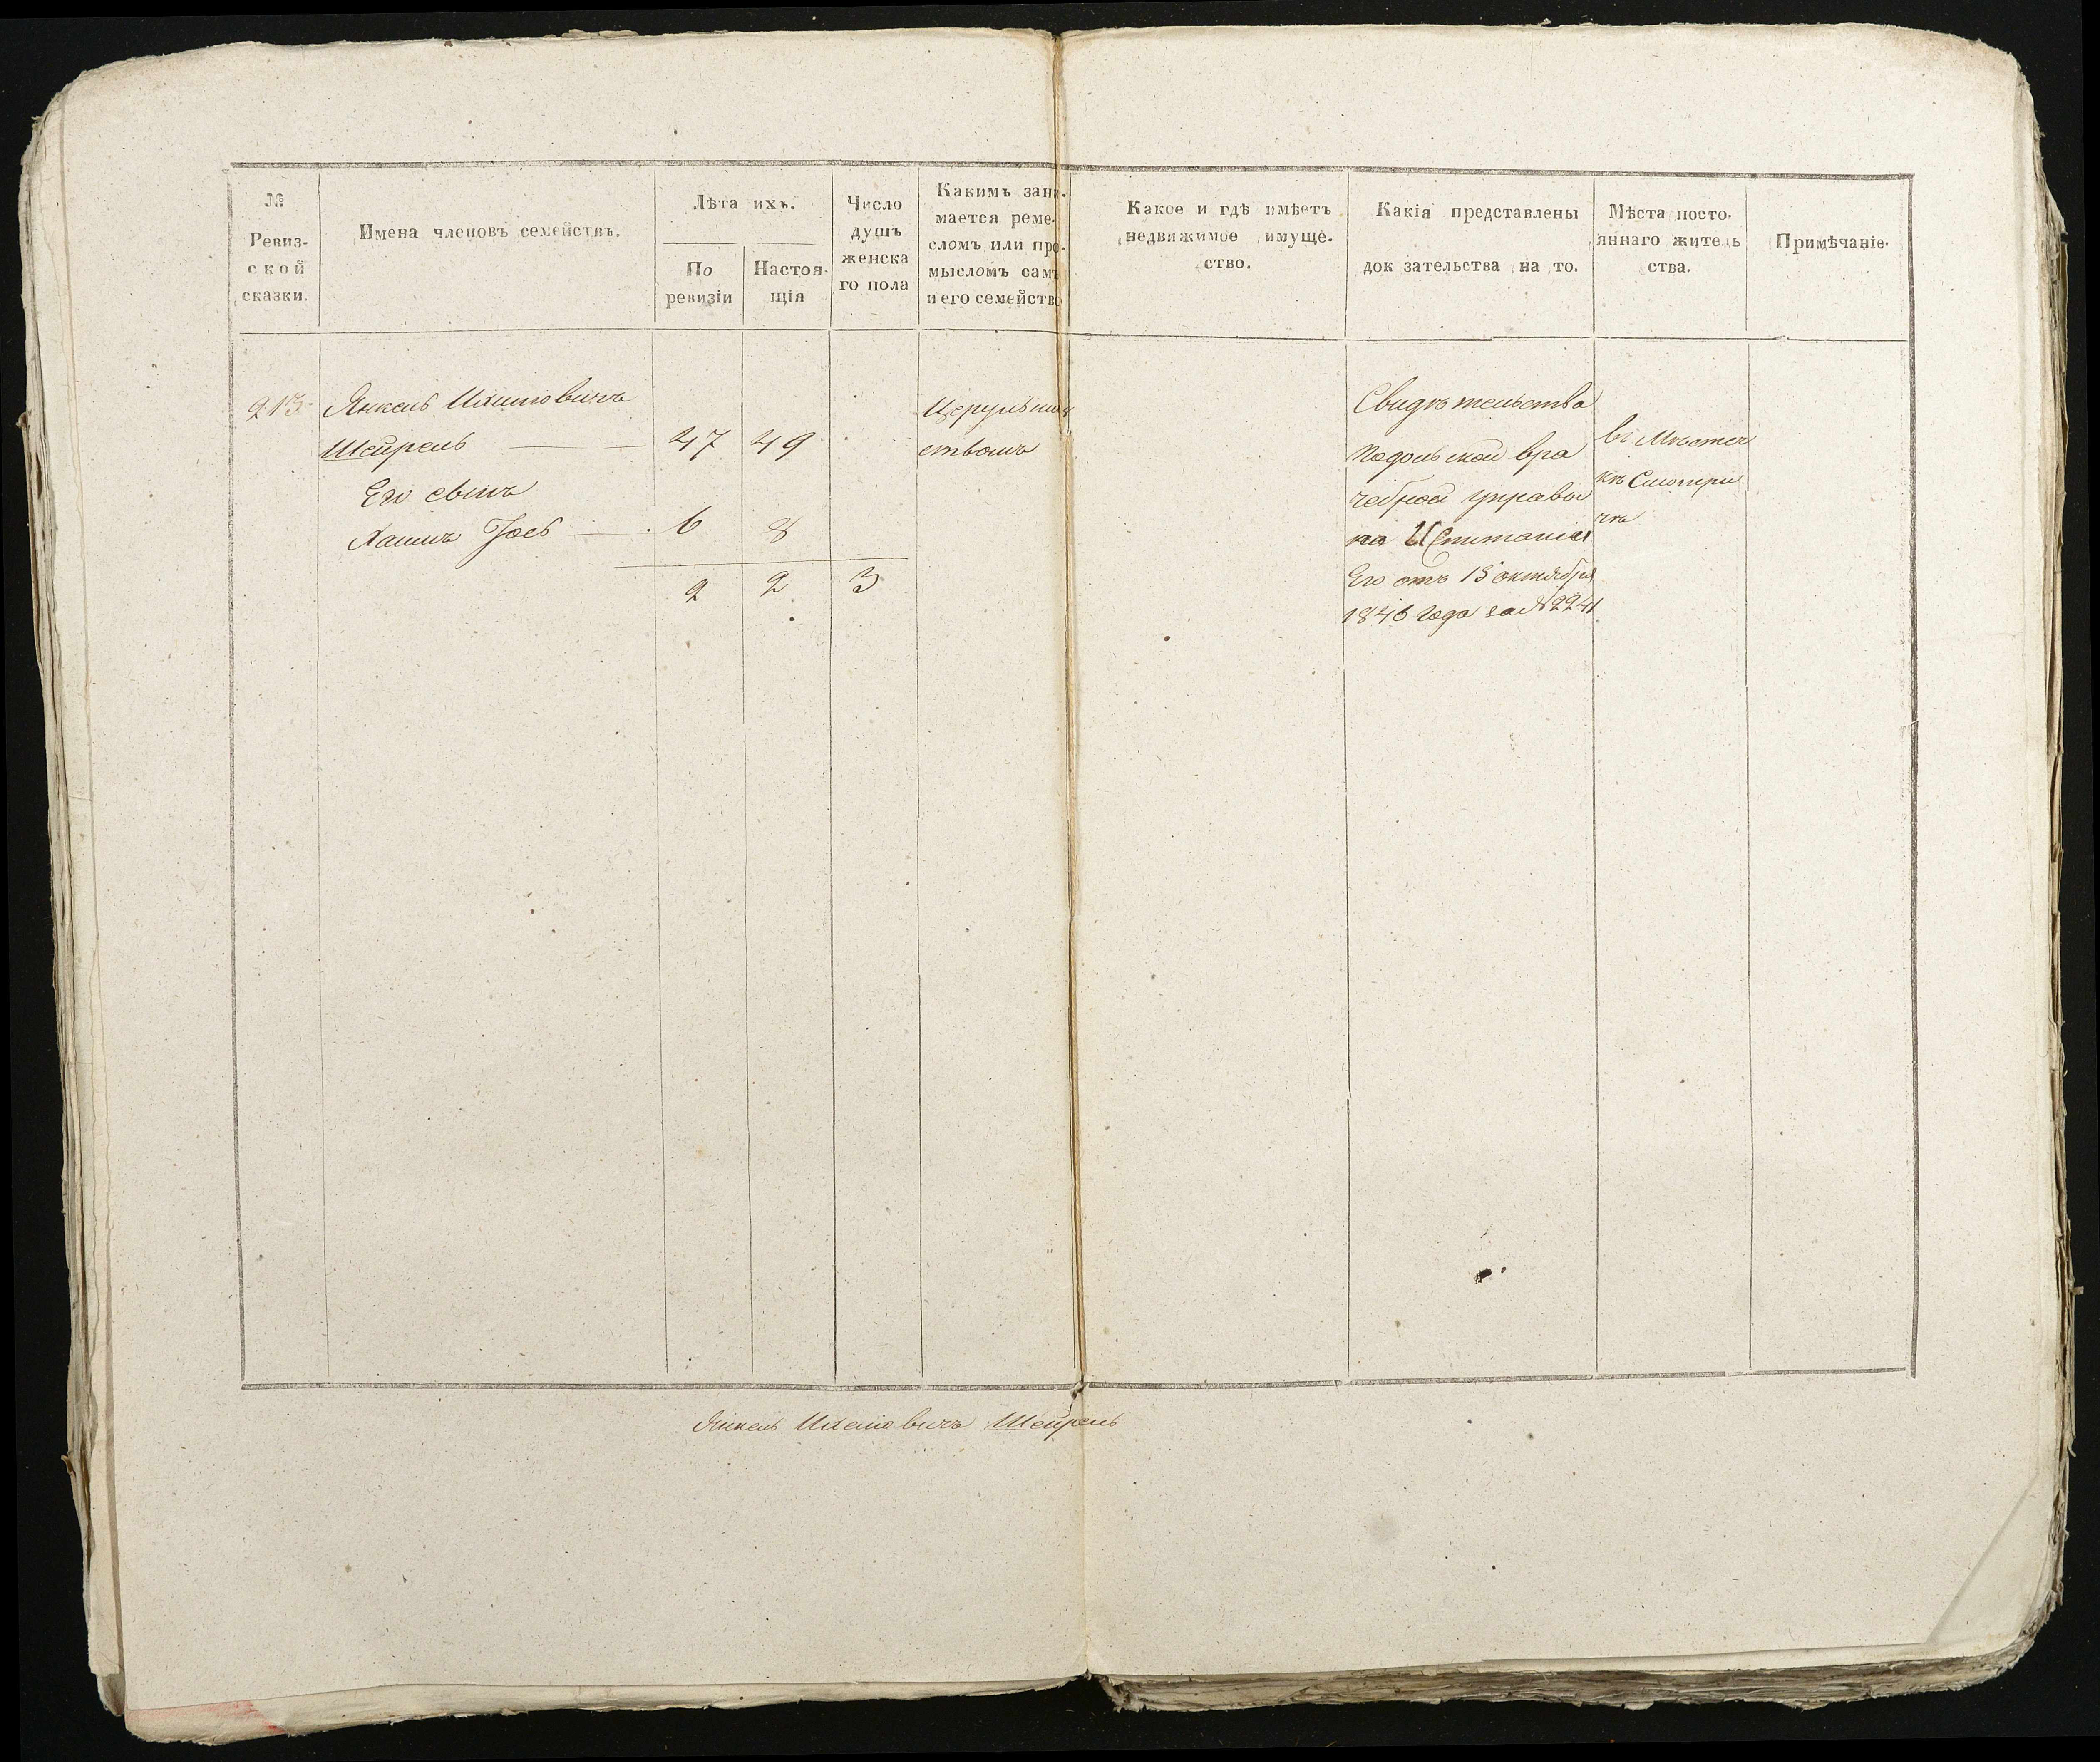 №
Ревиз-
ской
сказки.
Имена членовъ семействъ.
Лѣта ихъ.
По
ревизіи
Настоя-
щія
Число
душъ
женска
го пола
Какимъ зани-
мается реме-
сломъ или про-
мысломъ самъ
и его семейство
Какое и гдѣ имѣетъ
недвижимое имуще-
ство.
Какія представлены
док зательства на то.
Мѣста посто-
яннаго житель
ства.
Примѣчаніе.
213 Янкель
Шейрель 47 49
Его сынъ
Хаимъ 6 8
2 2 3
Церульни
ствомъ
Свидѣтельства
Подольской вра
чебной управы
на
Его отъ 13 октября
1846 года за № 2241
въ Мѣстеч
кѣ Смотри
чѣ
Янкель Шейрель